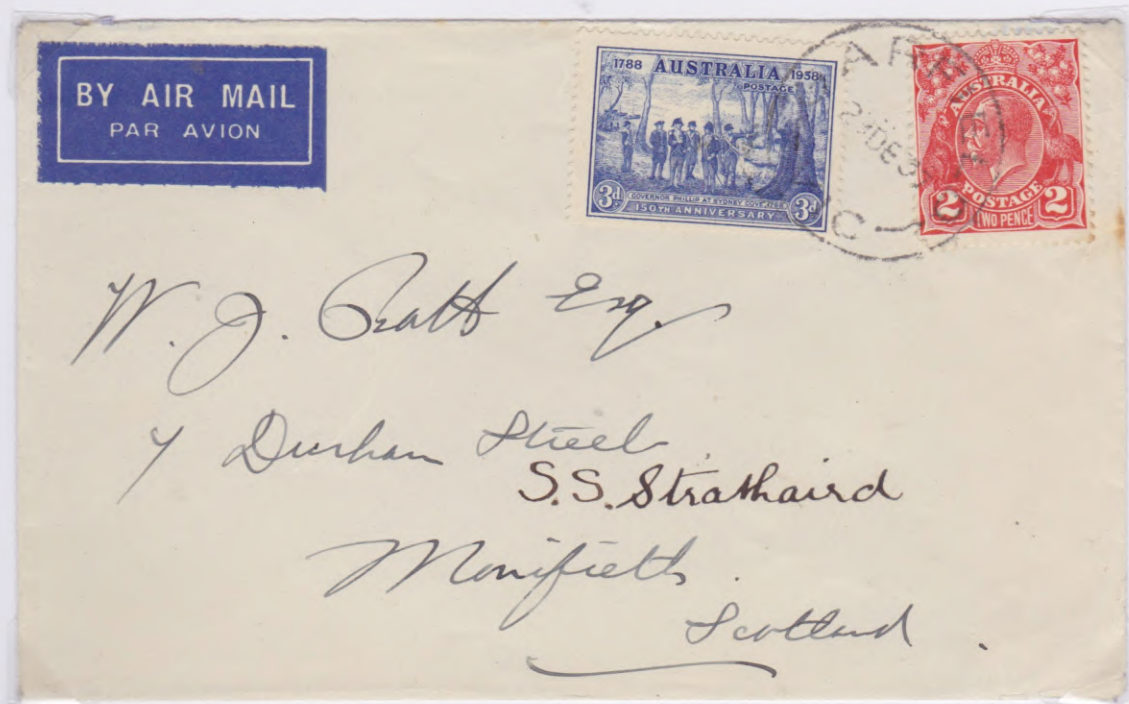 BY AIR MAIL
PAR AVION
1788 AUSTRALIA 1938
POSTAGE
3d GOVERNOR PHILLIP AT SYDNEY COVE 3d
150TH ANNIVERSARY
AUSTRALIA
POSTAGE
2 TWO PENCE 2
DE
W. J. Pratt Esq.
7 Durham Street
S.S. Strathaird
Monifieth
Scotland